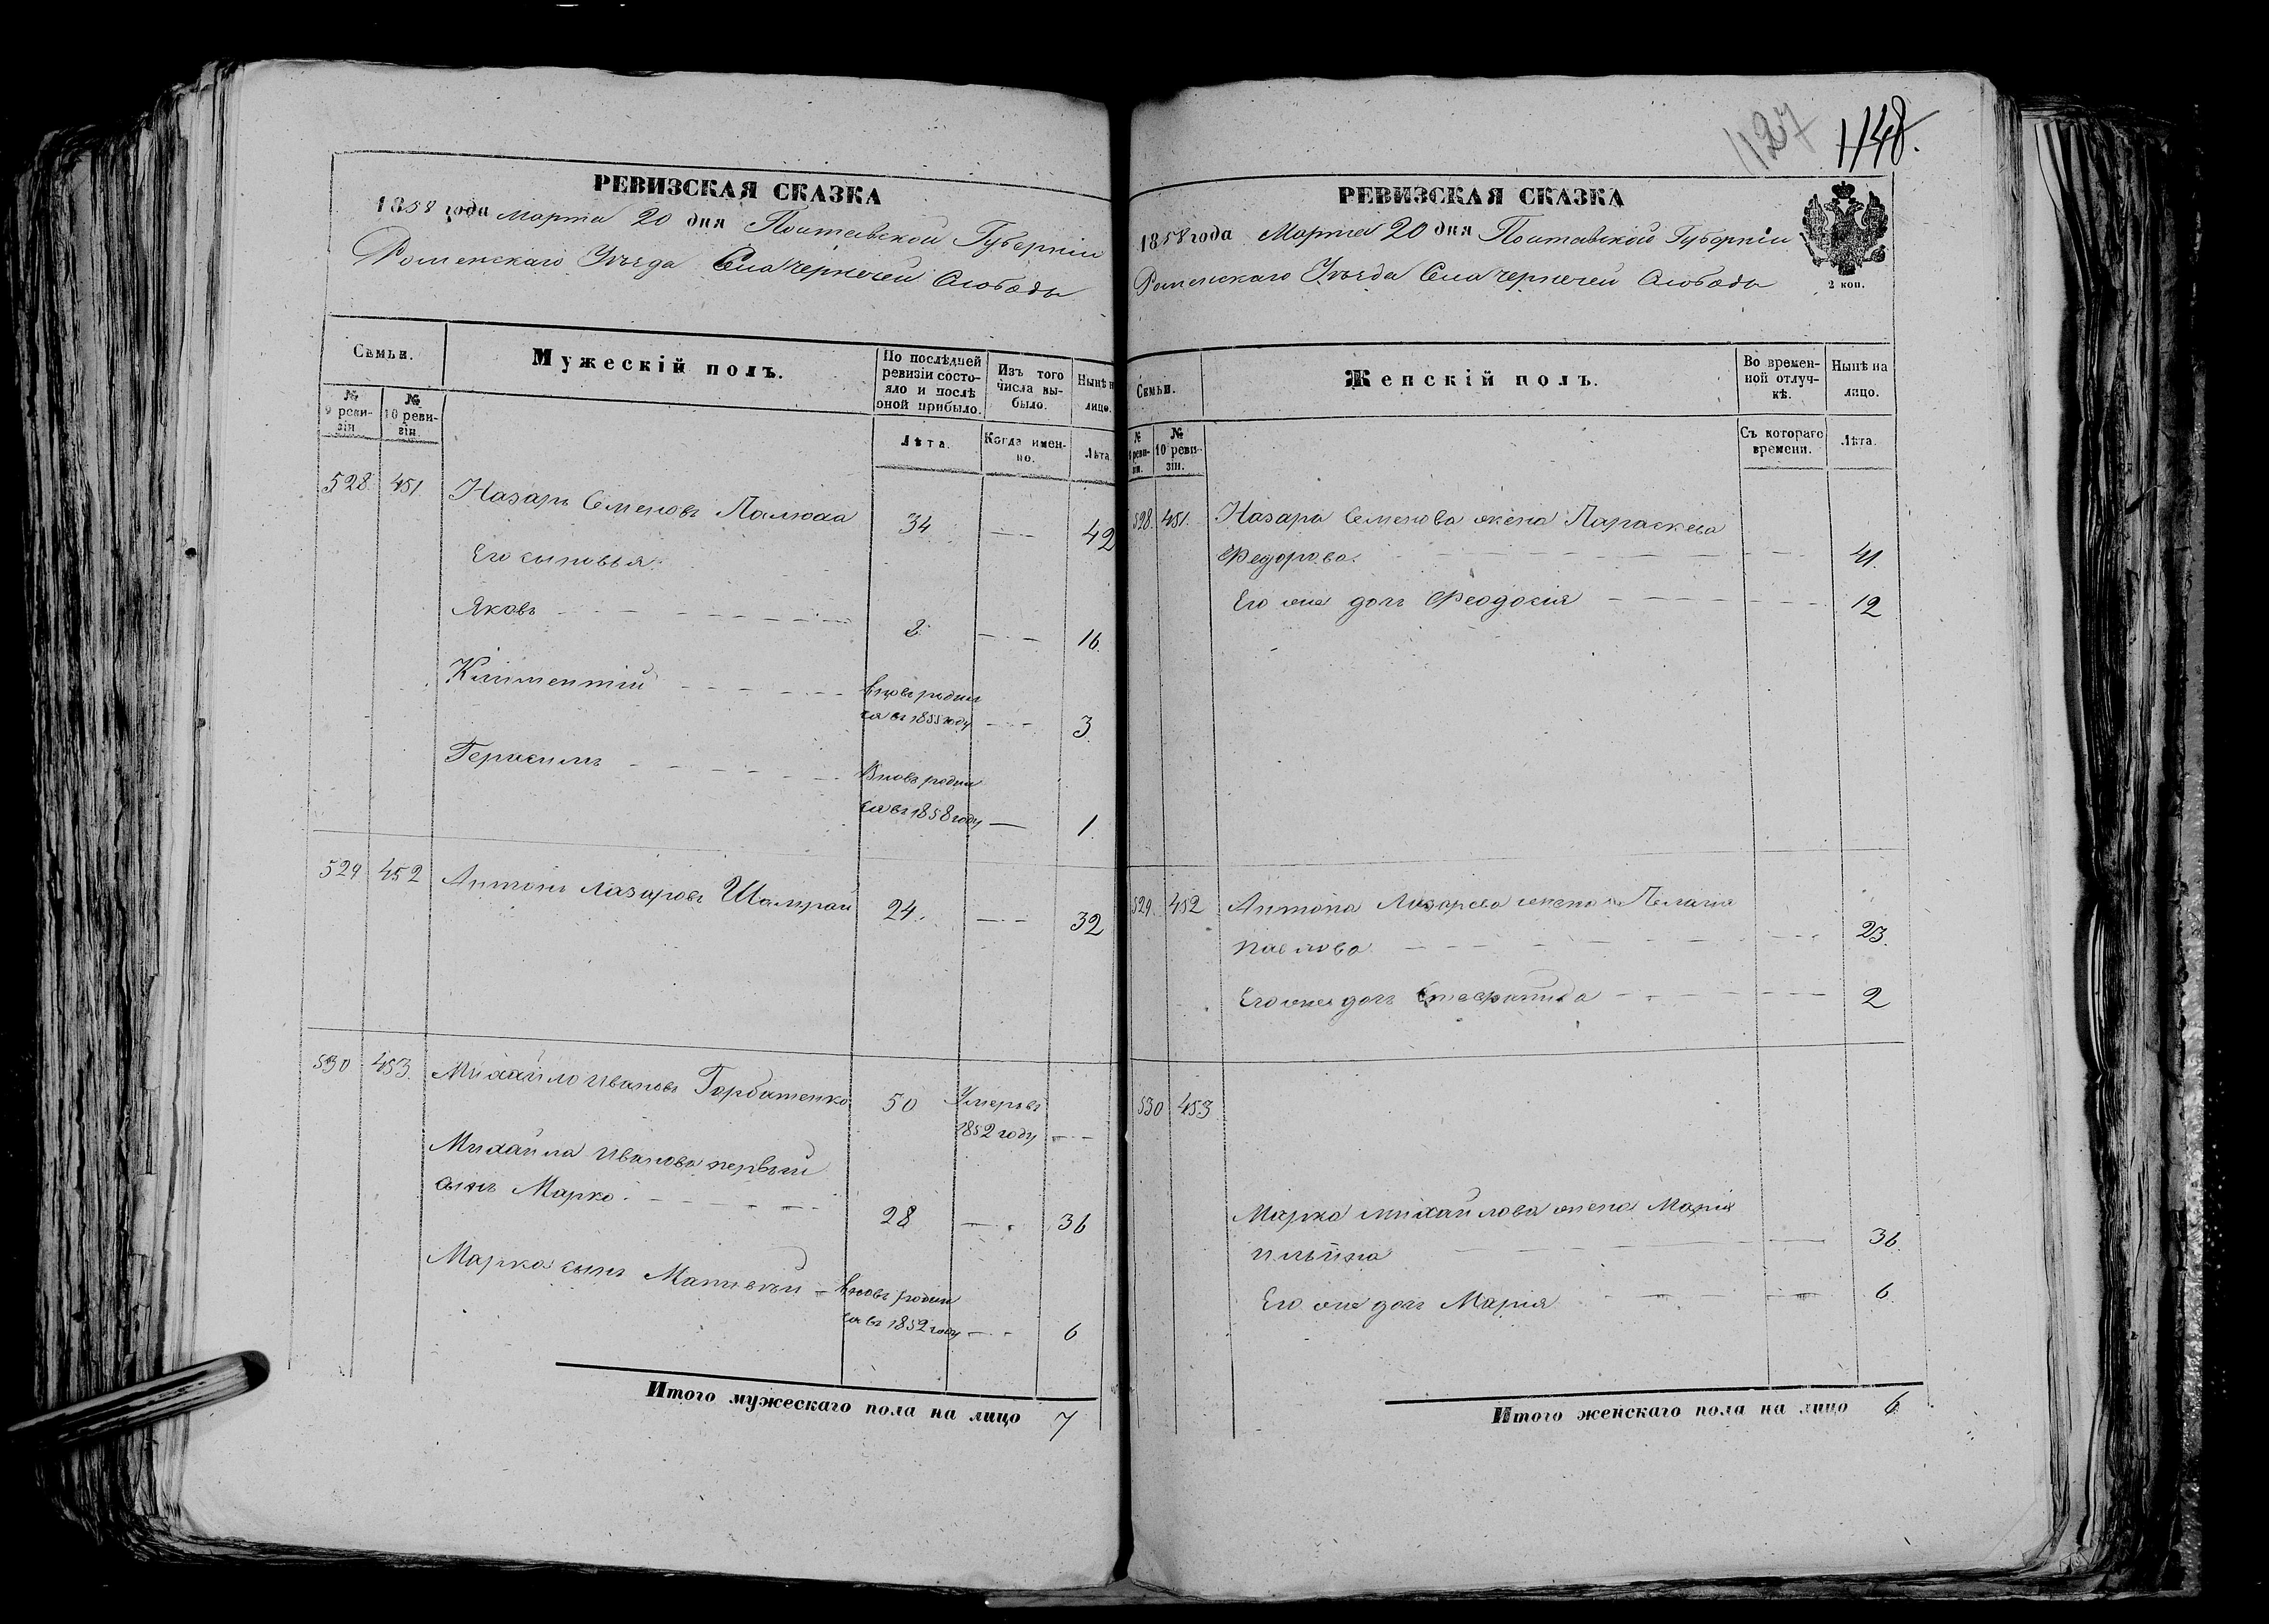 РЕВИЗСКАЯ СКАЗКА
1858 года Марта 20 дня Полтавской Губерніи
Роменскаго Уѣзда Села Чернечей Слободы
Семьи.
Мужескій полъ.
По послѣдней ревизіи состояло и послѣ оной прибыло.
Изъ того числа выбыло.
Нынѣ на лицо.
№ 9 ревизіи
№ 10 ревизіи.
Лѣта.
Когда именно.
Лѣта.
528. 451. Назаръ Семеновъ 34 — 42
Его сыновья:
Яковъ 8 — 16.
Климентій вновь родил
ся въ 1855 году — 3
Герасимъ Вновь родил
ся въ 1858 году — 1.
529 452 Антонъ Лазаровъ Шамрай 24. — 32
530 453. Михайло Ивановъ Горбатенко 50 Умеръ въ
1852 году —
Михайла Иванова первый
сынъ Марко. 28 — 36
Марка сынъ Матвѣй вновь родил
ся въ 1852 году — 6
Итого мужескаго пола на лицо 7
1127 1148.
РЕВИЗСКАЯ СКАЗКА
1858 года Марта 20 дня Полтавской Губерніи
Роменскаго Уѣзда Села Чернечей Слободы
2 коп.
Семьи.
Женскій полъ.
Во временной отлучкѣ.
Нынѣ на лицо.
№ 9 ревизіи.
№ 10 ревизіи.
Съ котораго времени.
Лѣта.
528. 451. Назара Семенова жена Параскева
Федорова. — 41.
Его дочь Феодосія — 12
529. 452 Антона Лазарева жена Пелагія
Павлова — 23.
Его дочь — 2
530 453
Марка Михайлова жена Марія
Ильина — 36.
Его дочь Марія — 6.
Итого женскаго пола на лицо 6.